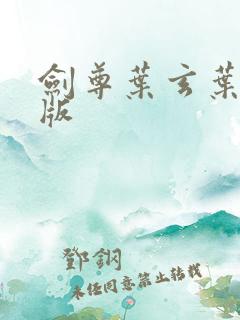 劍尊葉玄葉
版
鄧鋼
未任同意禁止转载